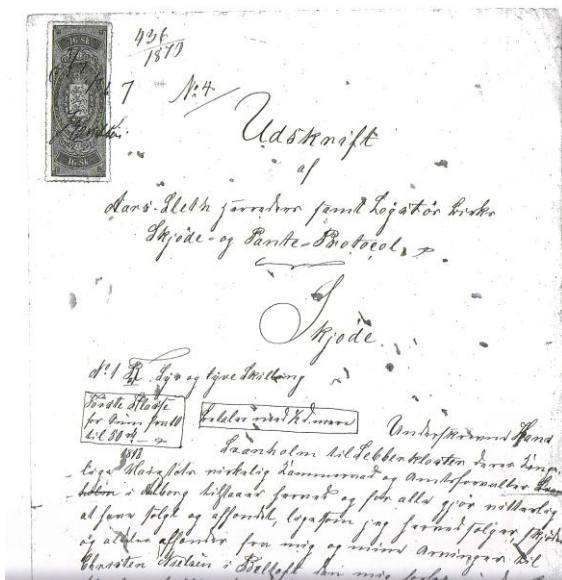 16 SK
436
1879
7
No 4
16 SK
Udskrift
af
Aars-Sleth Herreders samt Løgstør Birks
Skjøde- og Pante-Protocol.
Skjøde.
No 1 Syv og tyve Skilling
Første Klasse
til 50
Betales med
Underskrevne Hans
Svanholm til Sebberkloster, deres Konge-
lige Majestæts virkelig Kammerraad og Amtsforvalter
holm i Aalborg tilstaaer herved og for alle gjør vitterlig
at have solgt og afhændet, ligesom jeg herved sælger, skjøder
og aldeles afhænder fra mig og mine Arvinger til
Christen Nielsen i